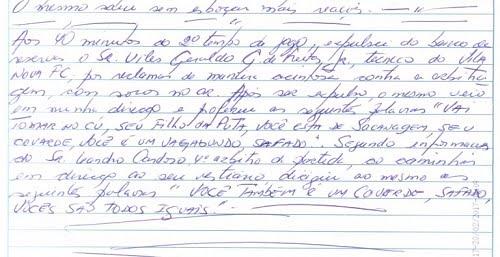 O mesmo saiu sem esboçar mais reação.
Aos 40 minutos do 2º tempo de jogo, expulsei do banco de
reservas o Sr. Geraldo G. de Freitas Jr, técnico do VILA
NOVA FC, por reclamar de maneira acintosa contra a arbitra
gem, com socos no ar. Após ser expulso, o mesmo veio
em minha direção e proferiu as seguintes palavras "VAI
TOMAR NO CÚ, SEU FILHO DA PUTA, VOCÊ ESTÁ DE SACANAGEM, SEU
COVARDE, VOCÊ É UM VAGABUNDO, SAFADO". Segundo informações
do Sr. Leandro Cardoso, 4º árbitro da partida, ao caminhar
em direção ao seu vestiário dirigiu ao mesmo as
seguintes palavras "VOCÊ TAMBÉM É UM COVARDE, SAFADO,
VOCÊS SÃO TODOS IGUAIS".